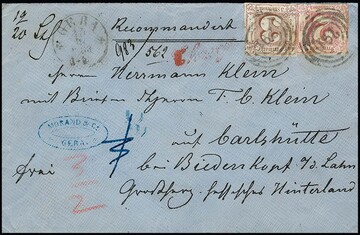 GERA
Recommandirt
983
562
3 3
Herrn Herrmann Klein
mit Briefen Herrn T. C. Klein
MORAND & Co.
GERA.
auf Carlshütte
frei
bei Biedenkopf a/d. Lahn
3/2
Grossherz. hessisches Hinterland